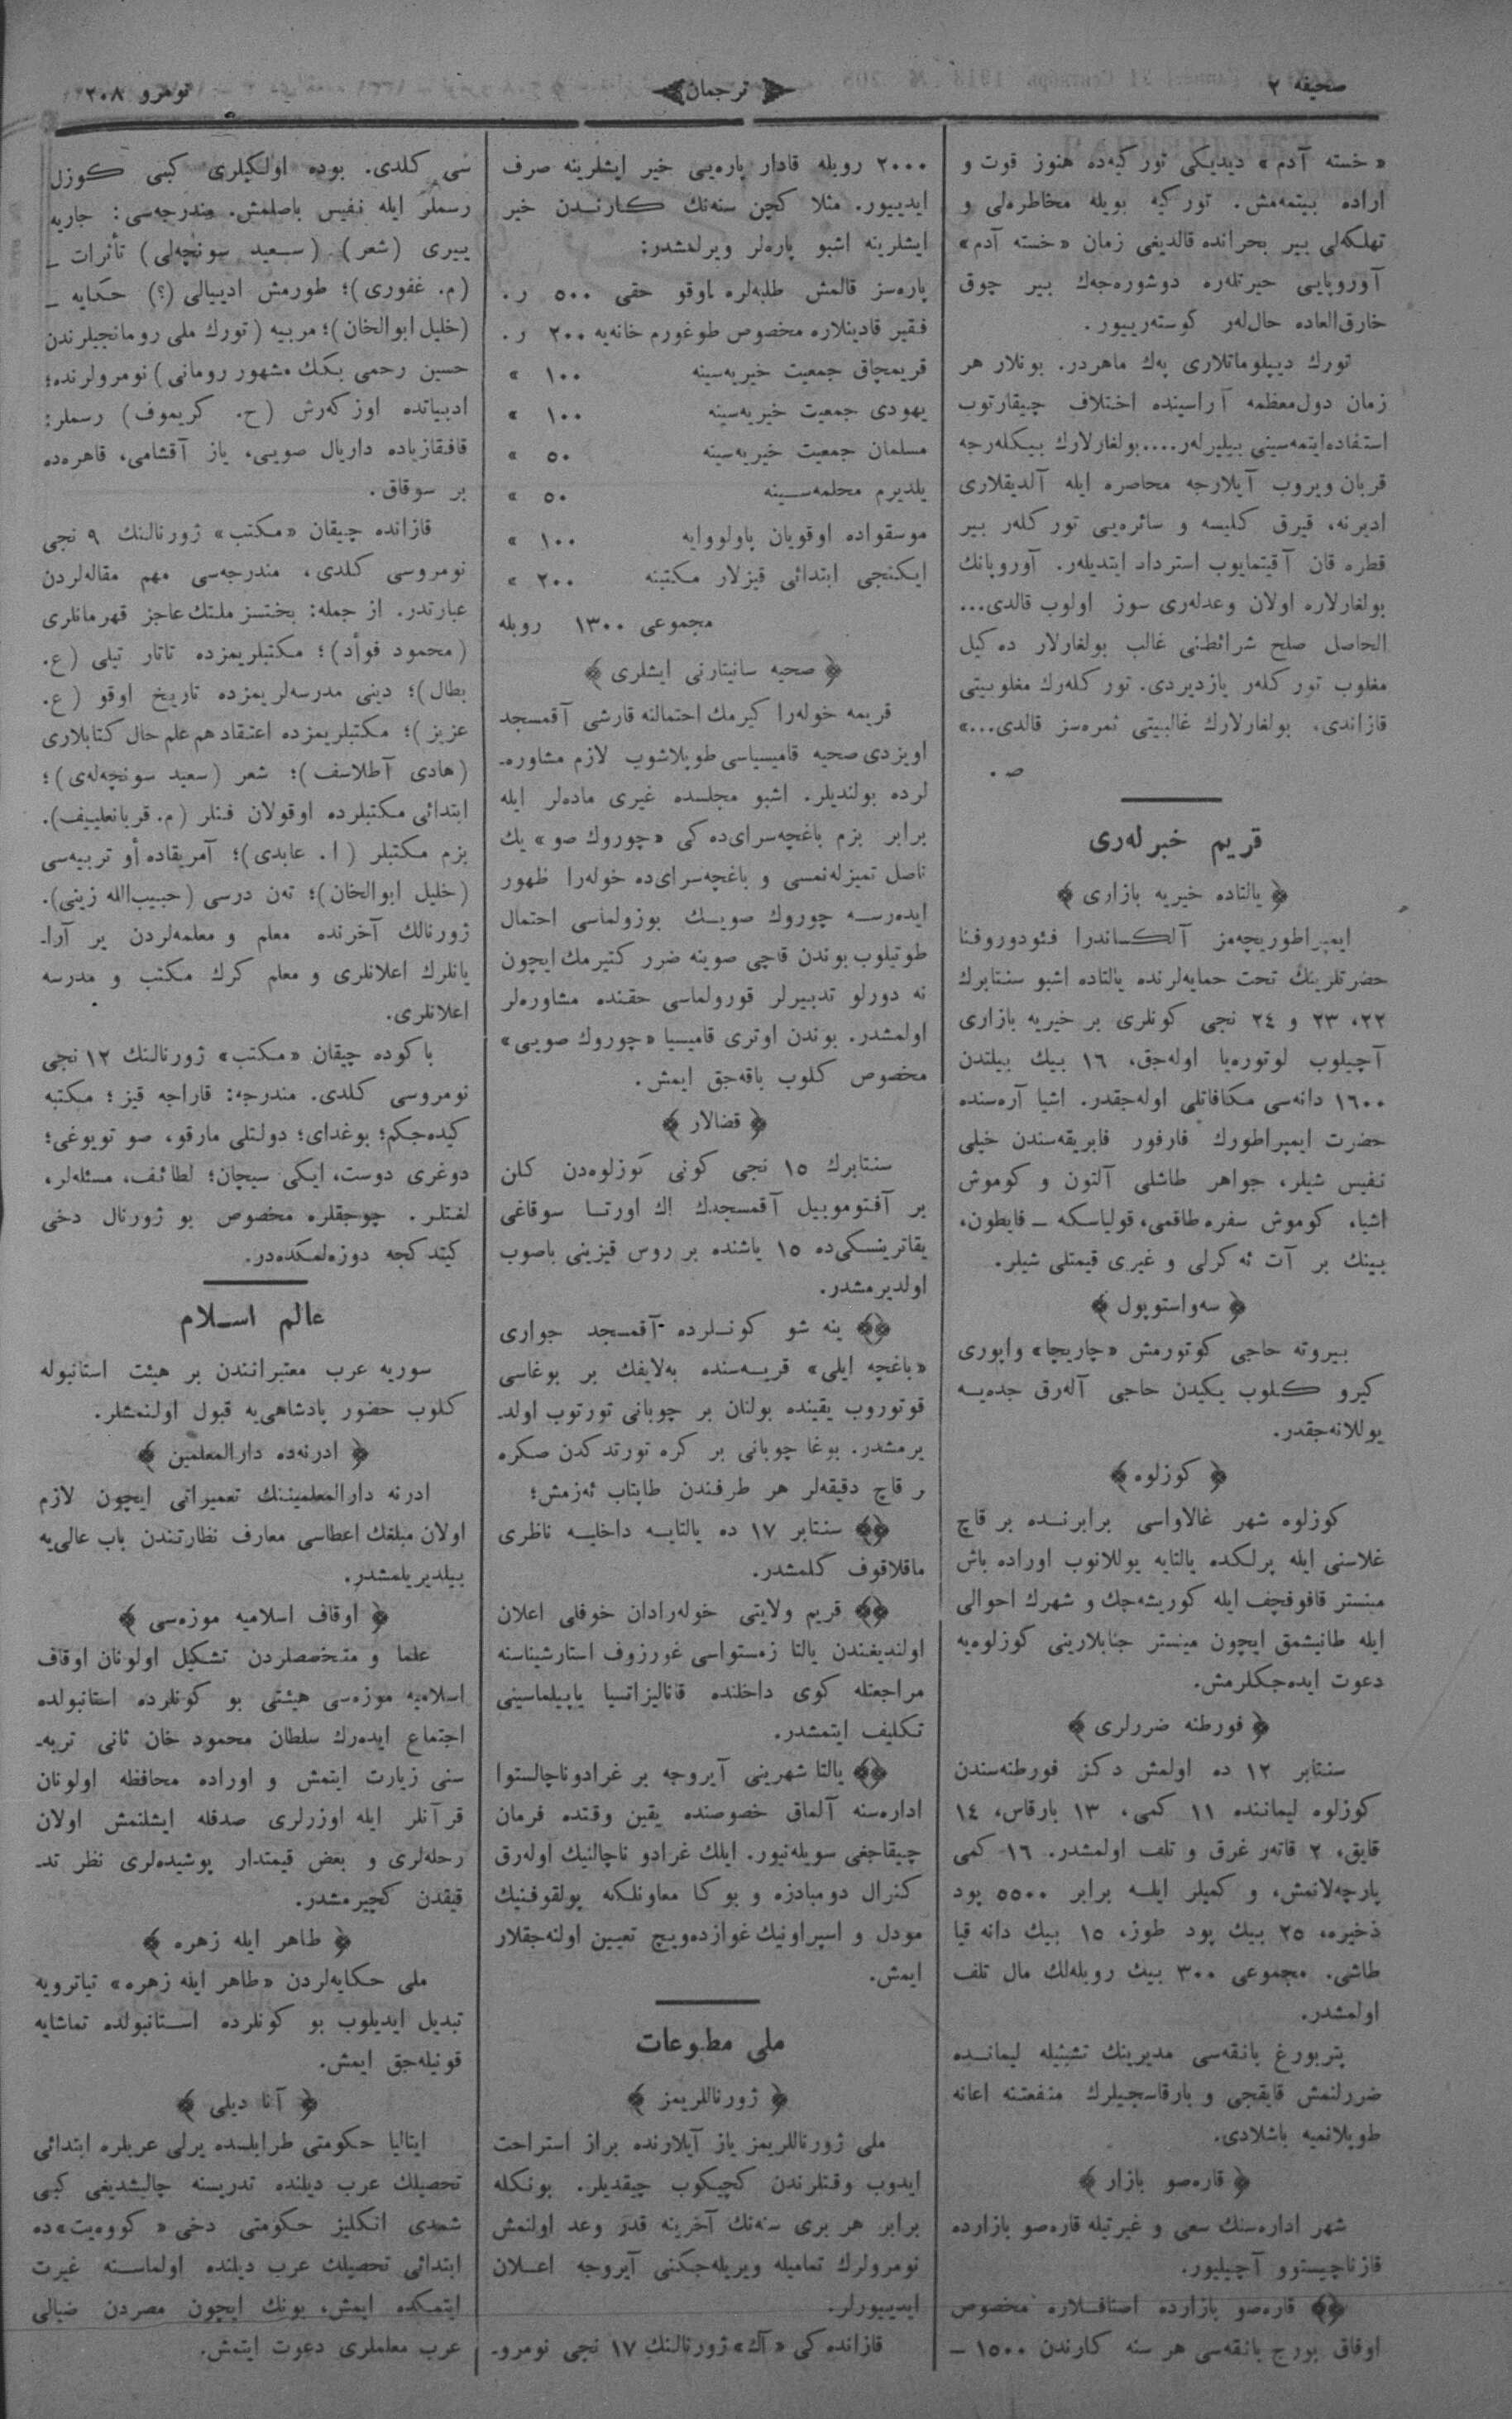 صحیفه ٢
ترجمان
نومرو ٢٠٨
« خسته آدم » دیدیکی تورکیه‌ده هنوز قوت و
اراده بیتمه‌مش. تورکیه بویله مخاطره‌لی و
تهلکه‌لی بیر بحرانده قالدیغی زمان «خسته آدم»
آوروپایی حیرتله‌ره دوشوره‌جه‌ك بیر چوق
خارق‌العاده حال‌لەر کوسته‌رییور.
تورك دیپلوماتلاری پەك ماهردر. بونلار هر
زمان دول‌معظمه آراسینده اختلاف چیقارتوب
استفاده‌ایتمه‌سینی بیلیرلەر.... بولغارلارك بیکلەرجه
قربان ویروب آیلارجه محاصره ایله آلدیقلاری
ادیرنه، قیرق کلیسه و سائره‌یی تورکلەر بیر
قطره قان آقیتمایوب استرداد ایتدیلەر. آوروپانك
بولغارلاره اولان وعدلەری سوز اولوب قالدی...
الحاصل صلح شرائطنی غالب بولغارلار ده‌کیل
مغلوب تورکلەر یازدیردی. تورکلەرك مغلوبیتی
قازاندی. بولغارلارك غالبیتی ثمره‌سز قالدی...»
ص.
قریم خبرلەری
﴿ یالتاده خیریه بازاری ﴾
ایمپراطوریچه‌مز آلکساندرا فئودوروفنا
حضرتلرینك تحت حمایه‌لرنده یالتاده اشبو سنتابرك
٢٢، ٢٣ و ٢٤ نجی کونلری بر خیریه بازاری
آچیلوب لوتوره‌یا اوله‌جق، ١٦ بیك بیلتدن
١٦٠٠ دانه‌سی مکافاتلی اوله‌جقدر. اشیا آره‌سنده
حضرت ایمپراطورك فارفور فابریقه‌سندن خیلی
نفیس شیلر، جواهر طاشلی آلتون و کوموش
اشیا، کوموش سفره طاقمی، قولیاسکه ـ فایطون،
بینك بر آت ئه‌کرلی و غیری قیمتلی شیلر.
﴿ سه‌واستوپول ﴾
بیروته حاجی کوتورمش «چاریچا» واپوری
کیرو کلوب یکیدن حاجی آله‌رق جده‌یه
یوللانه‌جقدر.
﴿ کوزلوه ﴾
کوزلوه شهر غالاواسی برابرنده بر قاچ
غلاسنی ایله برلکده یالتایه یوللانوب اوراده باش
مینستر قاقوفچف ایله کوریشه‌جك و شهرك احوالی
ایله طانیشمق ایچون مینستر جنابلارینی کوزلوه‌یه
دعوت ایده‌جکلرمش.
﴿ فورطنه ضررلری ﴾
سنتابر ١٢ ده اولمش دکز فورطنه‌سندن
کوزلوه لیماننده ١١ کمی، ١٣ بارقاس، ١٤
قایق، ٢ قاتەر غرق و تلف اولمشدر. ١٦ کمی
پارچه‌لانمش، و کمیلر ایله برابر ٥٥٠٠ پود
ذخیره، ٢٥ بیك پود طوز، ١٥ بیك دانه قیا
طاشی. مجموعی ٣٠٠ بیك روبله‌لك مال تلف
اولمشدر.
پتربورغ بانقه‌سی مدیرینك تشبثیله لیمانده
ضررلنمش قایقجی و بارقاسجیلرك منفعتنه اعانه
طوپلانمیه باشلادی.
﴿ قاره‌صو بازار ﴾
شهر اداره‌سنك سعی و غیرتیله قاره‌صو بازارده
قازناچیستوو آچیلیور.
﴿﴾ قاره‌صو بازارده اصنافلاره مخصوص
اوفاق بورج بانقه‌سی هر سنه کارندن ١٥٠٠ ـ
٢٠٠٠ روبله قادار پاره‌یی خیر ایشلرینه صرف
ایدییور. مثلا کچن سنه‌نك کارندن خیر
ایشلرینه اشبو پاره‌لر ویرلمشدر:
پاره‌سز قالمش طلبه‌لره اوقو حقی ٥٠٠ ر.
فقیر قادینلاره مخصوص طوغورم خانه‌یه ٢٠٠ ر.
قریمچاق جمعیت خیریه‌سینه ١٠٠ »
یهودی جمعیت خیریه‌سینه ١٠٠ »
مسلمان جمعیت خیریه‌سینه ٥٠ »
یلدیرم محلمه‌سینه ٥٠ »
موسقواده اوقویان پاولووایه ١٠٠ »
ایکنجی ابتدائی قیزلار مکتبنه ٢٠٠ »
مجموعی ١٣٠٠ روبله
﴿ صحیه سانیتارنی ایشلری ﴾
قریمه خوله‌را کیرمك احتمالنه قارشی آقمسجد
اویزدی صحیه قامیسیاسی طوپلاشوب لازم مشاوره‌ـ
لرده بولندیلر. اشبو مجلسده غیری ماده‌لر ایله
برابر بزم باغچه‌سرای‌ده کی «چوروك صو» یك
ناصل تمیزله‌نمسی و باغچه‌سرای‌ده خوله‌را ظهور
ایدەرسه چوروك صویك بوزولماسی احتمال
طوتیلوب بوندن قاچی صوینه ضرر کتیرمك ایچون
نه دورلو تدبیرلر قورولماسی حقنده مشاوره‌لر
اولمشدر. بوندن اوتری قامیسیا «چوروك صویی»
مخصوص کلوب باقه‌جق ایمش.
﴿ قضالار ﴾
سنتابرك ١٥ نجی کونی کوزلوه‌دن کلن
بر آفتوموبیل آقمسجدك اك اورتا سوقاغی
یقاترینسکی‌ده ١٥ یاشنده بر روس قیزینی باصوب
اولدیرمشدر.
﴿﴾ ینه شو کونلرده آقمسجد جواری
«باغچه ایلی» قریه‌سنده به‌لایفك بر بوغاسی
قوتوروب یقینده بولنان بر چوبانی تورتوب اولدـ
یرمشدر. بوغا چوبانی بر کره تورتدکدن صکره
ر قاچ دقیقه‌لر هر طرفندن طابتاب ئه‌زمش؛
﴿﴾ سنتابر ١٧ ده یالتایه داخلیه ناظری
ماقلاقوف کلمشدر.
﴿﴾ قریم ولایتی خوله‌رادان خوفلی اعلان
اولندیغندن یالتا زمستواسی غورزوف استارشیناسنه
مراجعتله کوی داخلنده قانالیزاتسیا یاپیلماسینی
تکلیف ایتمشدر.
﴿﴾ یالتا شهرینی آیروجه بر غرادوناچالستوا
اداره‌سنه آلماق خصوصنده یقین وقتده فرمان
چیقاجغی سویله‌نیور. ایلك غرادو ناچالنیك اوله‌رق
کنرال دومبادزه و بوکا معاونلکه پولقوفنیك
مودل و اسپراونیك غوازده‌ویچ تعیین اولنه‌جقلار
ایمش.
ملی مطبوعات
﴿ ژورناللریمز ﴾
ملی ژورناللریمز یاز آیلارنده براز استراحت
ایدوب وقتلرندن کچیکوب چیقدیلر. بونکله
برابر هر بری سنه‌نك آخرینه قدر وعد اولنمش
نومرولرك تمامیله ویریله‌جکنی آیروجه اعلان
ایدییورلر.
قازانده کی «آك» ژورنالنك ١٧ نجی نومروـ
سی کلدی. بوده اولکیلری کبی کوزل
رسملر ایله نفیس باصلمش. مندرجه‌سی: جاریه
ییری (شعر) (سعید سونچه‌لی) تأثرات ـ
(م. غفوری)؛ طورمش ادیبالی (؟) حکایه ـ
(خلیل ابوالخان)؛ مربیه (تورك ملی رومانجیلرندن
حسین رحمی بکك مشهور رومانی) نومرولرنده؛
ادبیاتده اوزکەرش (ح. کریموف) رسملر:
قافقازیاده داریال صویی، یاز آقشامی، قاهره‌ده
بر سوقاق.
قازانده چیقان «مکتب» ژورنالنك ٩ نجی
نومروسی کلدی، مندرجه‌سی مهم مقاله‌لردن
عبارتدر. از جمله: بختسز ملتك عاجز قهرمانلری
(محمود فوأد)؛ مکتبلریمزده تاتار تیلی (ع.
بطال)؛ دینی مدرسه‌لریمزده تاریخ اوقو (ع.
عزیز)؛ مکتبلریمزده اعتقاد هم علم حال کتابلاری
(هادی آطلاسف)؛ شعر (سعید سونچه‌له‌ی)؛
ابتدائی مکتبلرده اوقولان فنلر (م. قربانعلییف).
بزم مکتبلر (ا. عابدی)؛ آمریقاده أو تربیه‌سی
(خلیل ابوالخان)؛ تەن درسی (حبیب‌الله زینی).
ژورنالك آخرنده معلم و معلمه‌لردن یر آراـ
یانلرك اعلانلری و معلم کرك مکتب و مدرسه
اعلانلری.
باکوده چیقان «مکتب» ژورنالنك ١٢ نجی
نومروسی کلدی. مندرجه: قاراجه قیز؛ مکتبه
کیده‌جکم؛ بوغدای؛ دولتلی مارقو، صو تویوغی؛
دوغری دوست، ایکی سیچان؛ لطائف، مسئله‌لر،
لغتلر. چوجقلره مخصوص بو ژورنال دخی
کیتدکجه دوزه‌لمکده‌در.
عالم اسلام
سوریه عرب معتبرانندن بر هیئت استانبوله
کلوب حضور پادشاهی‌یه قبول اولنمشلر.
﴿ ادرنه‌ده دارالمعلمین ﴾
ادرنه دارالمعلمیننك تعمیراتی ایچون لازم
اولان مبلغك اعطاسی معارف نظارتندن باب عالی‌یه
بیلدیریلمشدر.
﴿ اوقاف اسلامیه موزه‌سی ﴾
علما و متخصصلردن تشکیل اولونان اوقاف
اسلامیه موزه‌سی هیئتی بو کونلرده استانبولده
اجتماع ایدەرك سلطان محمود خان ثانی تربه‌ـ
سنی زیارت ایتمش و اوراده محافظه اولونان
قرآنلر ایله اوزرلری صدفله ایشلنمش اولان
رحله‌لری و بعض قیمتدار پوشیده‌لری نظر تدـ
قیقدن کچیرمشدر.
﴿ طاهر ایله زهره ﴾
ملی حکایه‌لردن «طاهر ایله زهره» تیاترویه
تبدیل ایدیلوب بو کونلرده استانبولده تماشایه
قونیله‌جق ایمش.
﴿ آنا دیلی ﴾
ایتالیا حکومتی طرابلسده یرلی عربلره ابتدائی
تحصیلك عرب دیلنده تدریسنه چالیشدیغی کبی
شمدی انکلیز حکومتی دخی «کووه‌یت» ده
ابتدائی تحصیلك عرب دیلنده اولماسنه غیرت
ایتمکده ایمش، بونك ایچون مصردن ضیالی
عرب معلملری دعوت ایتمش.